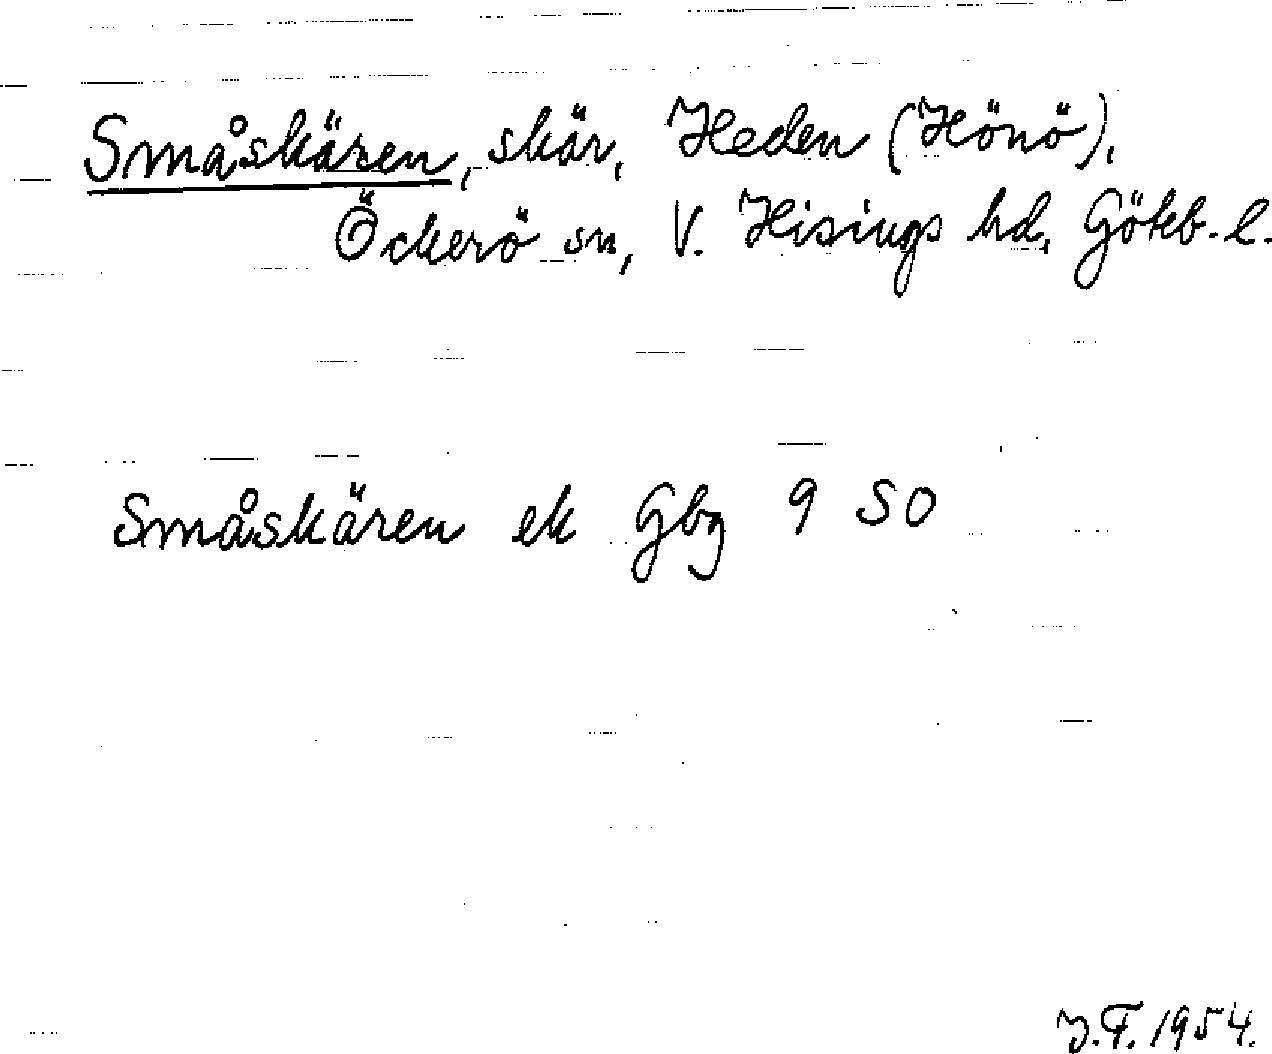 Småskären, skär, Heden (Hönö),
Öckerö sn, V. Hisings hd, Göteb. l.
Småskären ek Gbg 9 SO
J.F. 1954.